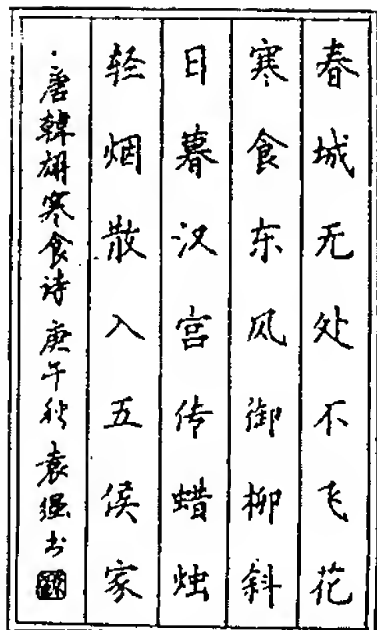 春城无处不飞花
寒食东风御柳斜
日暮汉宫传蜡烛
轻烟散入五侯家
·唐韩翃寒食诗 庚午秋 袁强书